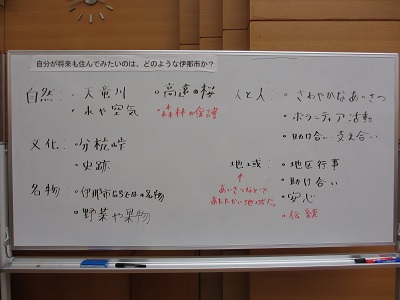 自分が将来も住んでみたいのは、どのような伊那市か?
自然:・天竜川 ・高遠の桜
・水や空気 ・森林の保護
文化:・分杭峠
・史跡
名物:・伊那市ならではの名物
・野菜や果物
人と人:・さわやかなあいさつ
・ボランティア活動
・助け合い支え合い
地域:・地区行事
・助け合い
・安心
・伝統
↑
あいさつなどで
あたたかい地域に。